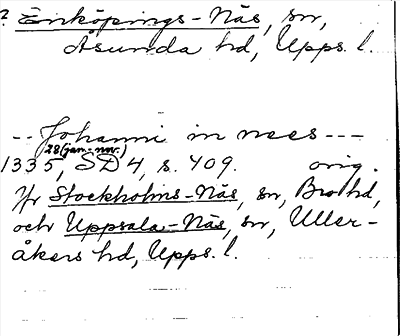 ? Enköpings-Näs, sn,
Åsunda hd, Upps. l.
-- Johanni in nees ---
28(jan.-nov.)
1335, SD 4, s. 409. orig.
Jfr Stockholms-Näs, sn, Bro hd,
och Uppsala-Näs, sn, Uller-
åkers hd, Upps. l.